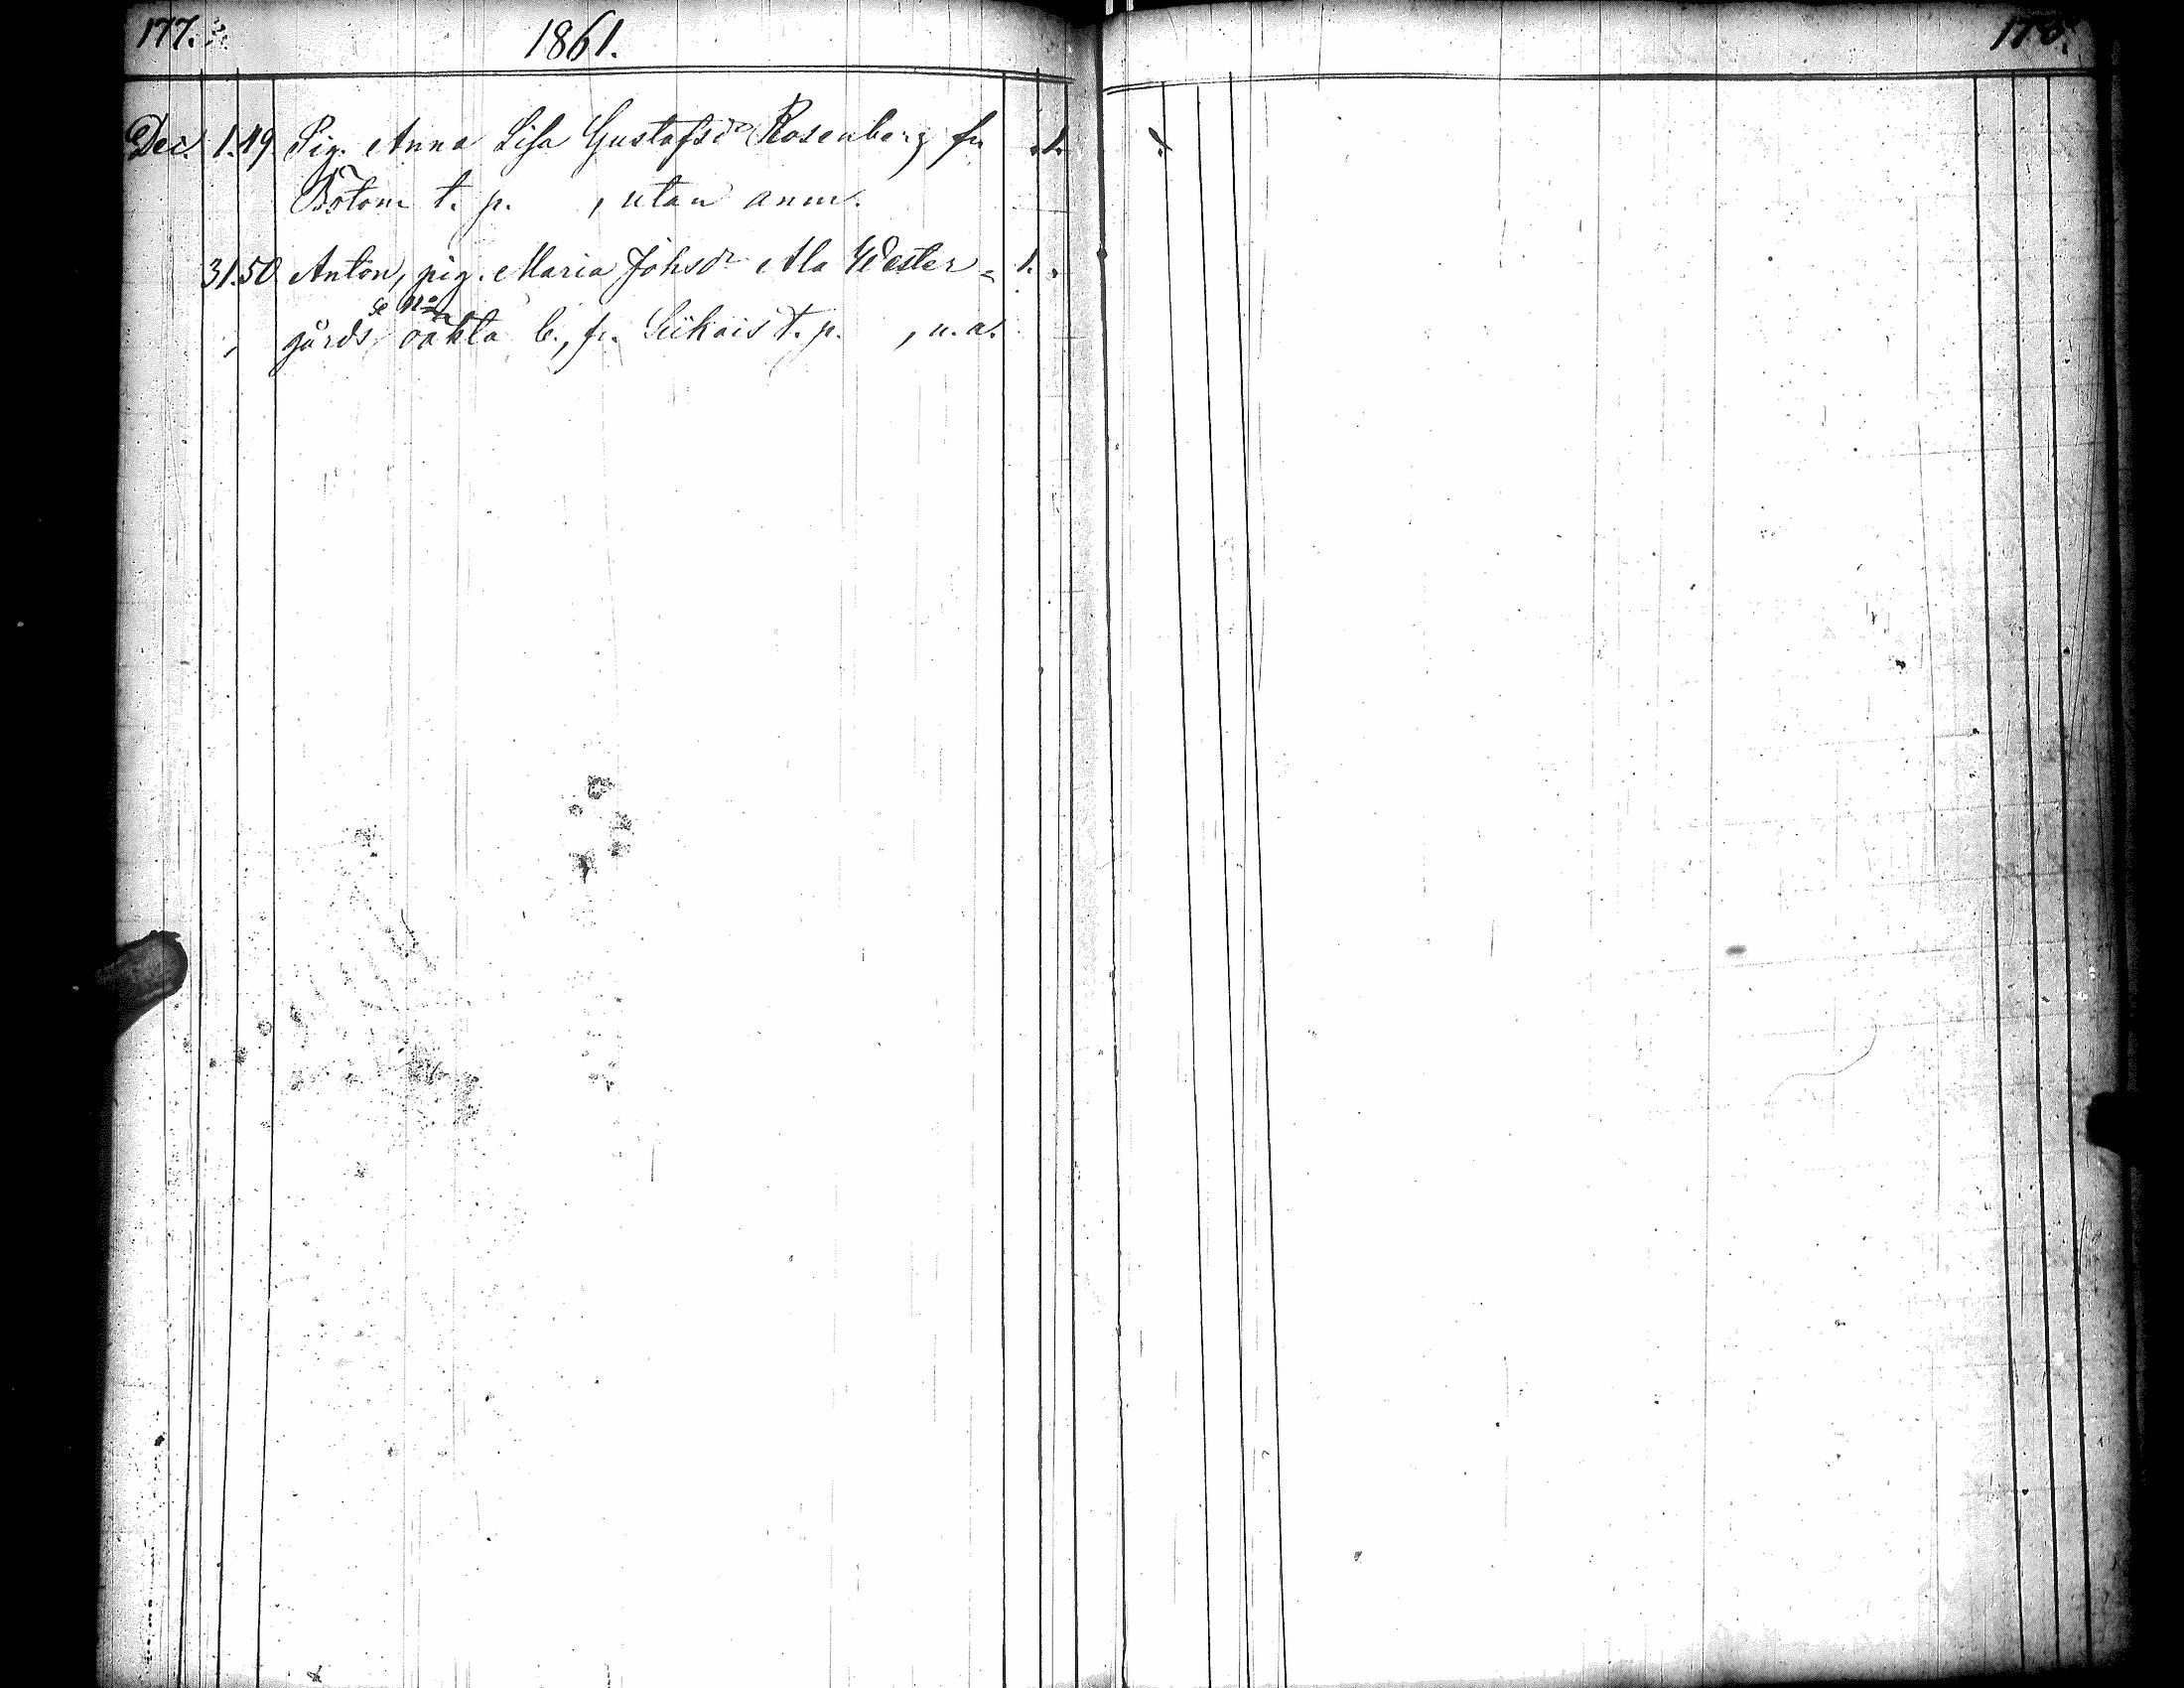 177.
1861.
178.
Dec. 1. 49. Pig. Anna Lisa Gustafsdr Rosenberg fr. .1.
Botom t. p. , utan anm.
31. 50 Anton, pig. Maria Johsdr Ala Wester= 1. .
se No
gårds oäkta b., fr. Siikais t. p. , u. a.